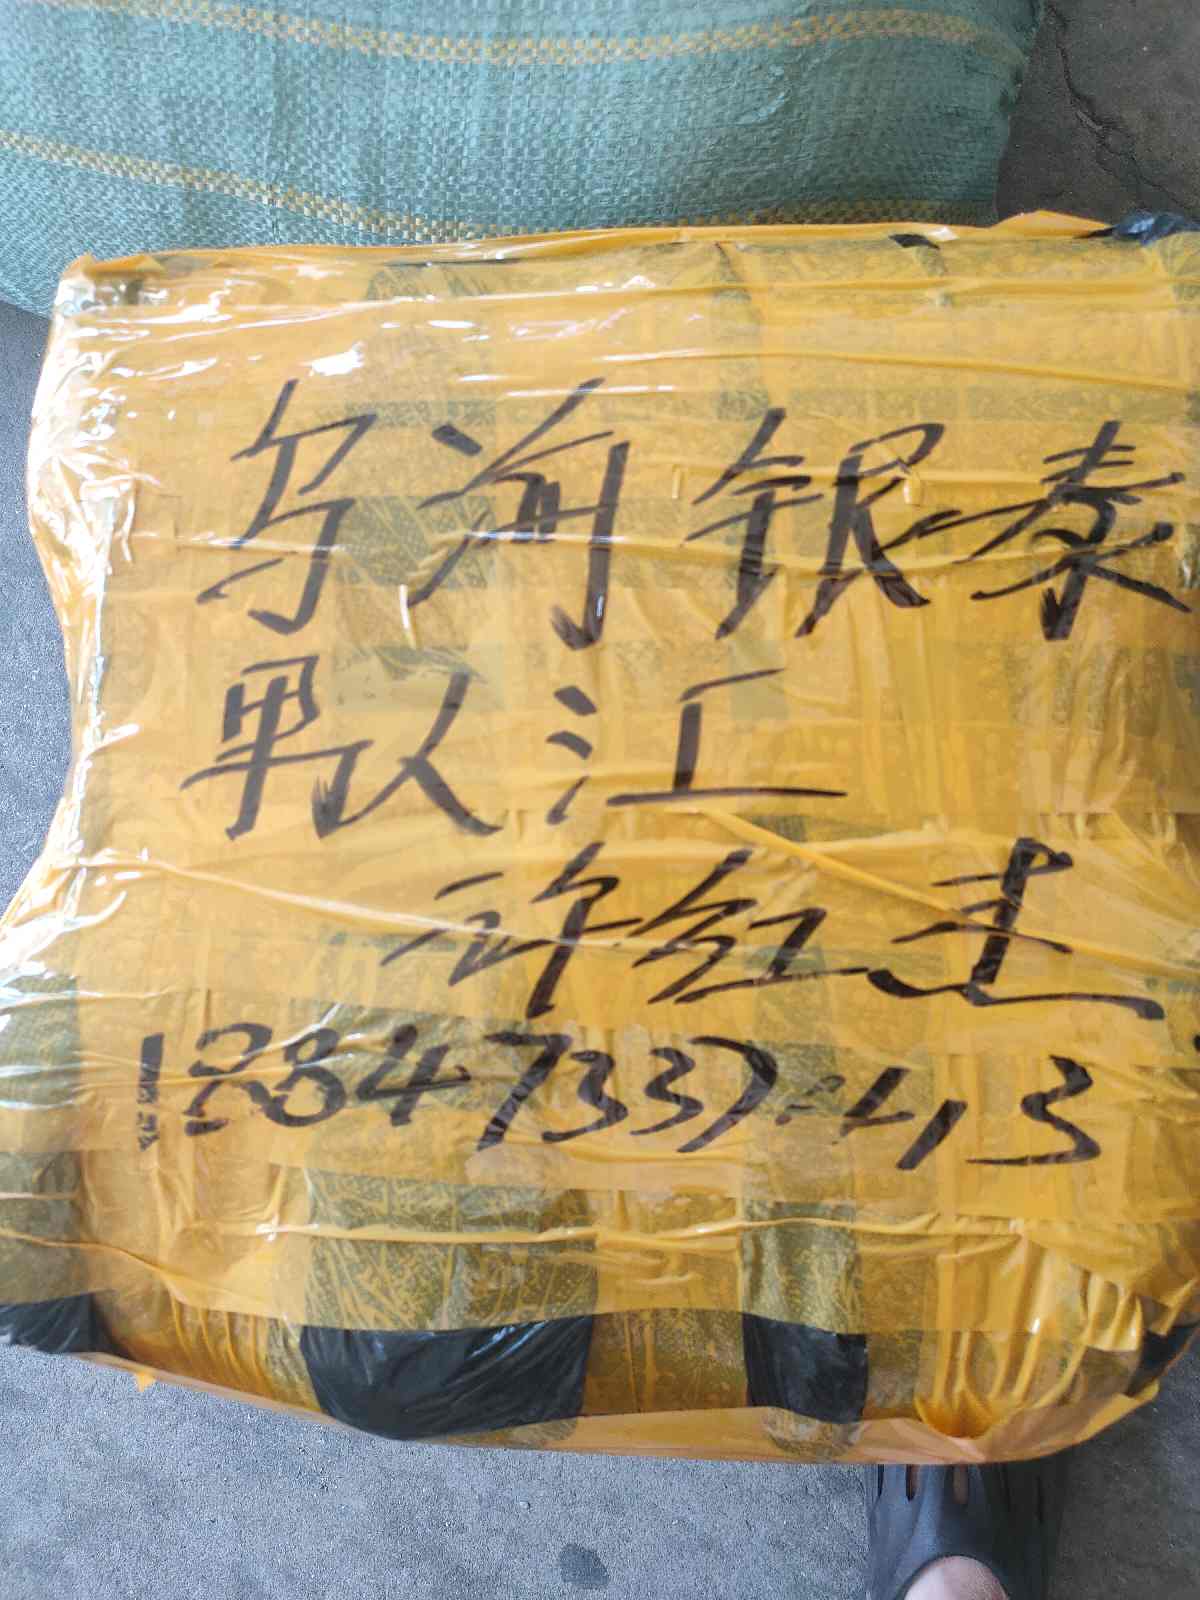 乌海银泰
男人江
许红建
18847337413